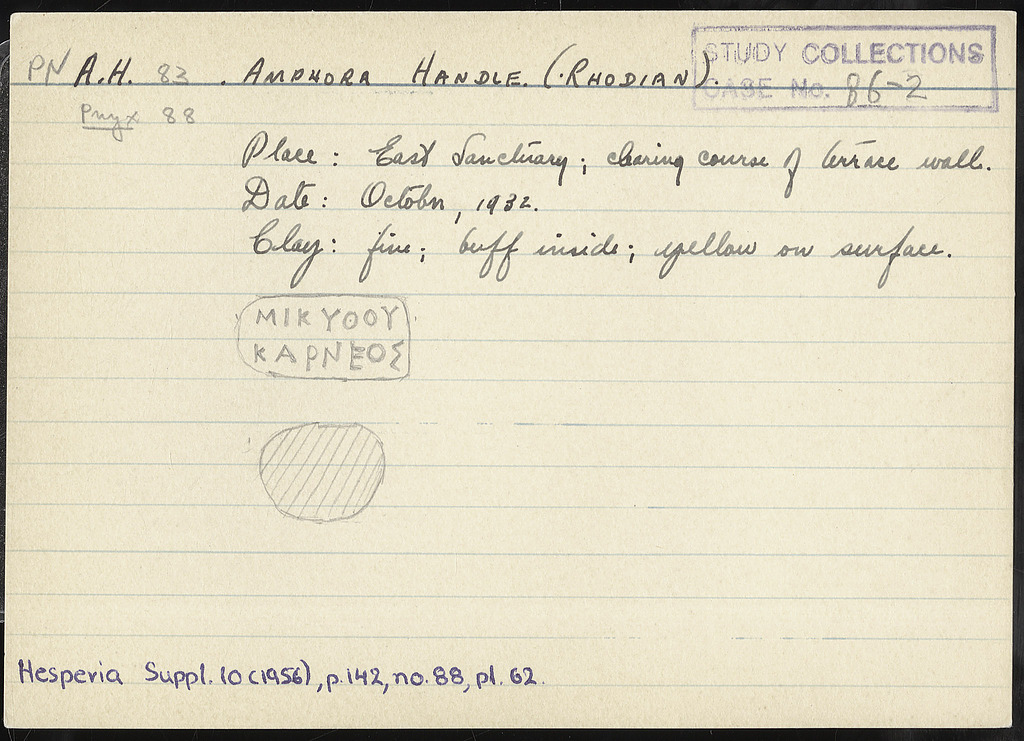 STUDY COLLECTIONS
PN A.H. 83 . AMPHORA HANDLE. (RHODIAN).
CASE No. 86-2
Pnyx 88
Place : East Sanctuary ; clearing course of terrace wall.
Date : October, 1932.
Clay : fine ; buff inside ; yellow on surface.
ΜΙΚΥΘΟΥ
ΚΑΡΝΕΟΣ
Hesperia Suppl. 10 (1956), p. 142, no. 88, pl. 62.